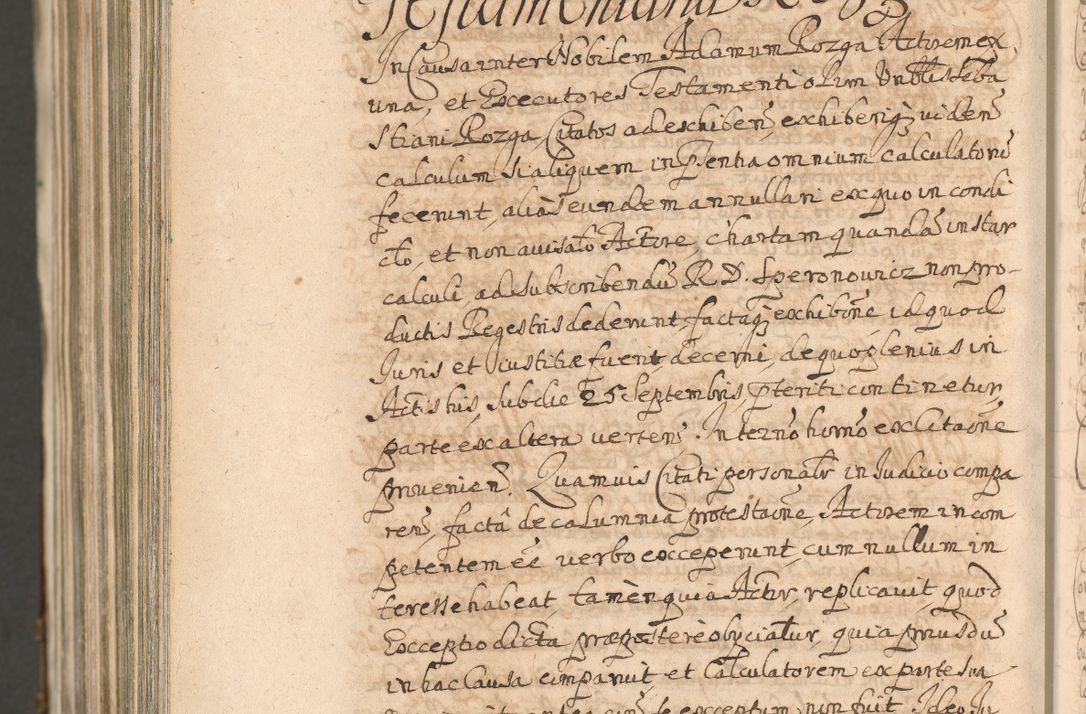 Testamentaria Rozga
In Causa inter Nobilem Adamum Rozga Actorem ex
una, et Execcutores Testamenti olim Gnblis Seba
stiani Rozga, Citatos ad exhiben̄, exhiberiq̃ viden̄
calculum si aliquem in p̄sentia omnium calculatorū
fecerunt, aliàs eundem annullari ex quo in condi
cto, et non avisato Actore, chartam quandā instar
calculi, ad subscribendū R. D. Speronowicz non pro-
ductis Regestris dederunt, factaq̃ exhibōne id quod
Juris et iustitiæ fuerit, decerni, de quo plenius in
Actis his, sub die 25 Septembris p̄teriti continetur
parte ex altera verten̄. In termō hornō ex Citaōne
provenien̄. Quamvis Citati personalr̄ in Judicio compa
ren̄, factâ de calumnia protestaōne, Actorem incom
petentem eē verbo excceperunt, cum nullum in
teresse habeat, tamèn quia Actor, replicavit, quod
Excceptio dicta præposterè obyciatur, quia priusdū
in hac Causa comparuit, et Calculatorem ex parte sua
se excceptum non fuit. Ideo Ju